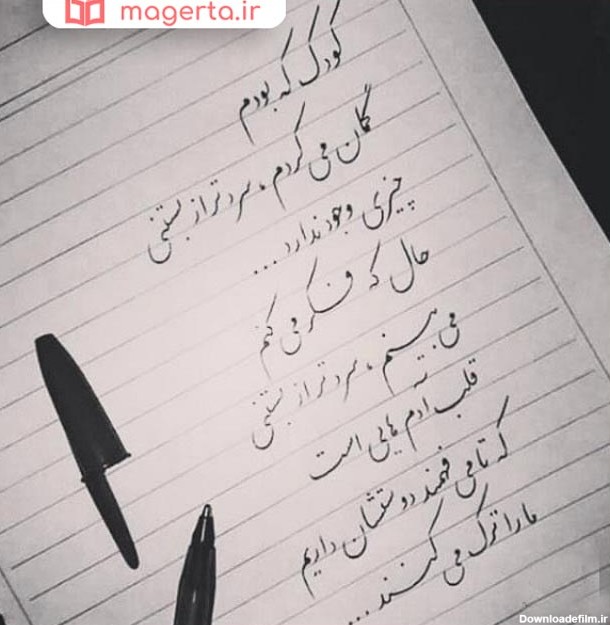 magerta.ir
کودک که بودم
گمان می کردم، سردتر از بستنی
چیزی وجود ندارد...
حال که فکر می کنم
می بینم، سردتر از بستنی
قلب ادم هایی است
که تا می فهمند دوستشان داریم
ما را ترک می کنند...
Downloadefilm.ir